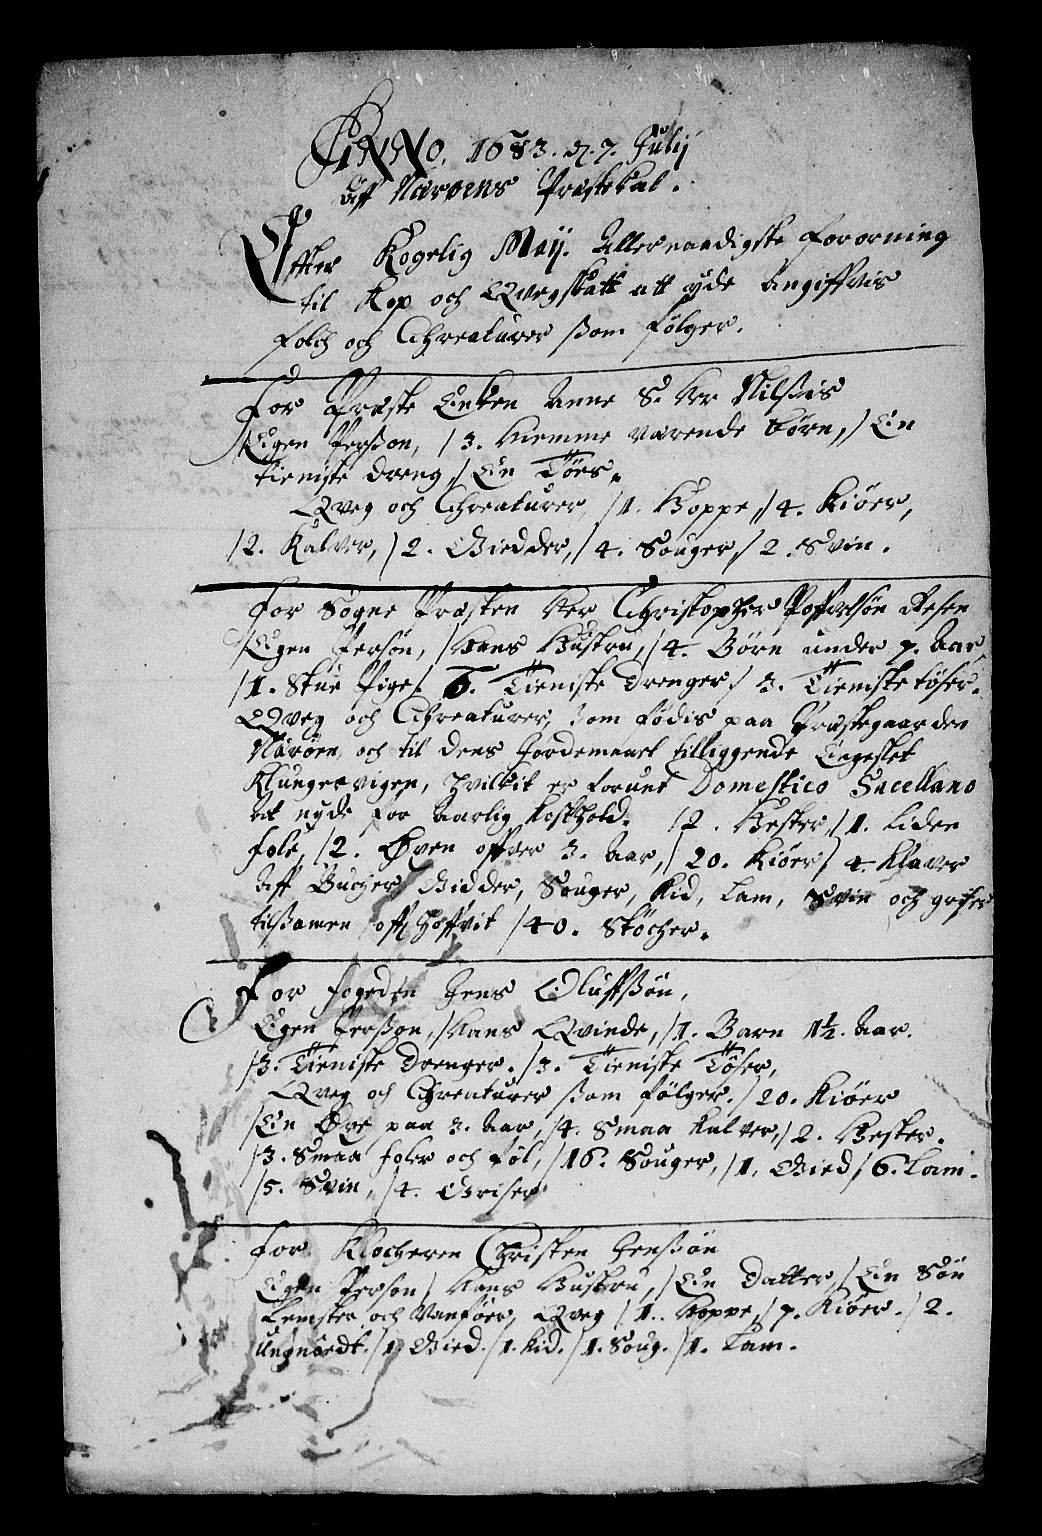 Anno. 1683. d. 7. Julij
Aff Nærøens Præstekal.
Effter Kogelig May. Aller naadigste fororning
til Kop och Qvegskatt att yde Angiffvis
folch och Chreaturer ßom følger.
For Præste Encken Anne S. Her Nilßis
/Egen Perßon, /3. hiemme værende børn, / En
tieniste dreng, / En Tøes.
Qveg och Chreaturer, /1. Hoppe, /4. Kiøer,
/2. Kalver, /2. Giedder, /4. Souger, /2. Svin.
For Sogne Præsten Her Christopher Poffvelsøn Resen
/Egen Persøn, /Hans Hustru, /4. Børn under 7. Aar,
/1. Stue Pige, 6. Tieniste drenger / 3. Tieniste tøser.
Qveg och Chreaturer, som fødis paa Præstegaarden
Nærøen, och til dens hardemaael tilliggende Engeslet
Klungervigen, hvilkit er forunt Domestico Sacellano
At nyde for Aarlig Kosthold. /2. Hester, /1. liden
fole, /2. Øxen offver 3. Aar, /20. Kiøer / 4. Klaver
Aff Bucher, Gidder, Souger, Kid, Lam, Svin och griser
tilßamen off hoffvit /40. Støcher.
For fogeden Jens Oluffßøn,
Egen Perßon, /Hans Qvinde, /1. Barn 1½. Aar.
/3. Tieniste drenger. /3. Tieniste Tøser,
Qveg och Chreaturer ßom følger. /20. Kiøer
/En Oxe paa 3. Aar, /4. Smaa Kalver, /2. Hester.
/3. Smaa foler och føl, /16. Souger, /1. Gied /6. Lam.
/5. Svin, /4. Griser
For Klocheren Christen Jenßøn
Egen Person / Hans Hustru, / En Datter, / En Søn
Lemster och Vanføer, Qveg /1. Hoppe, /7. Kiøer. /2.
Ungnødt. /1. Gied. /1. Kid. /1. Soug. /1. Lam.